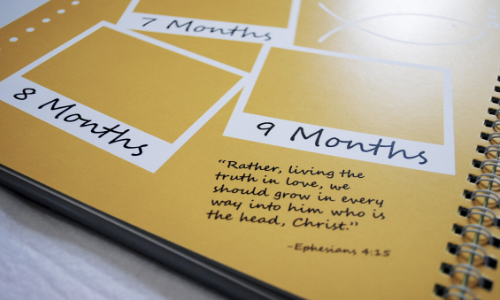 7 Months
8 Months
9 Months
“Rather, living the
truth in love, we
should grow in every
way into him who is
the head, Christ.”
-Ephesians 4:15